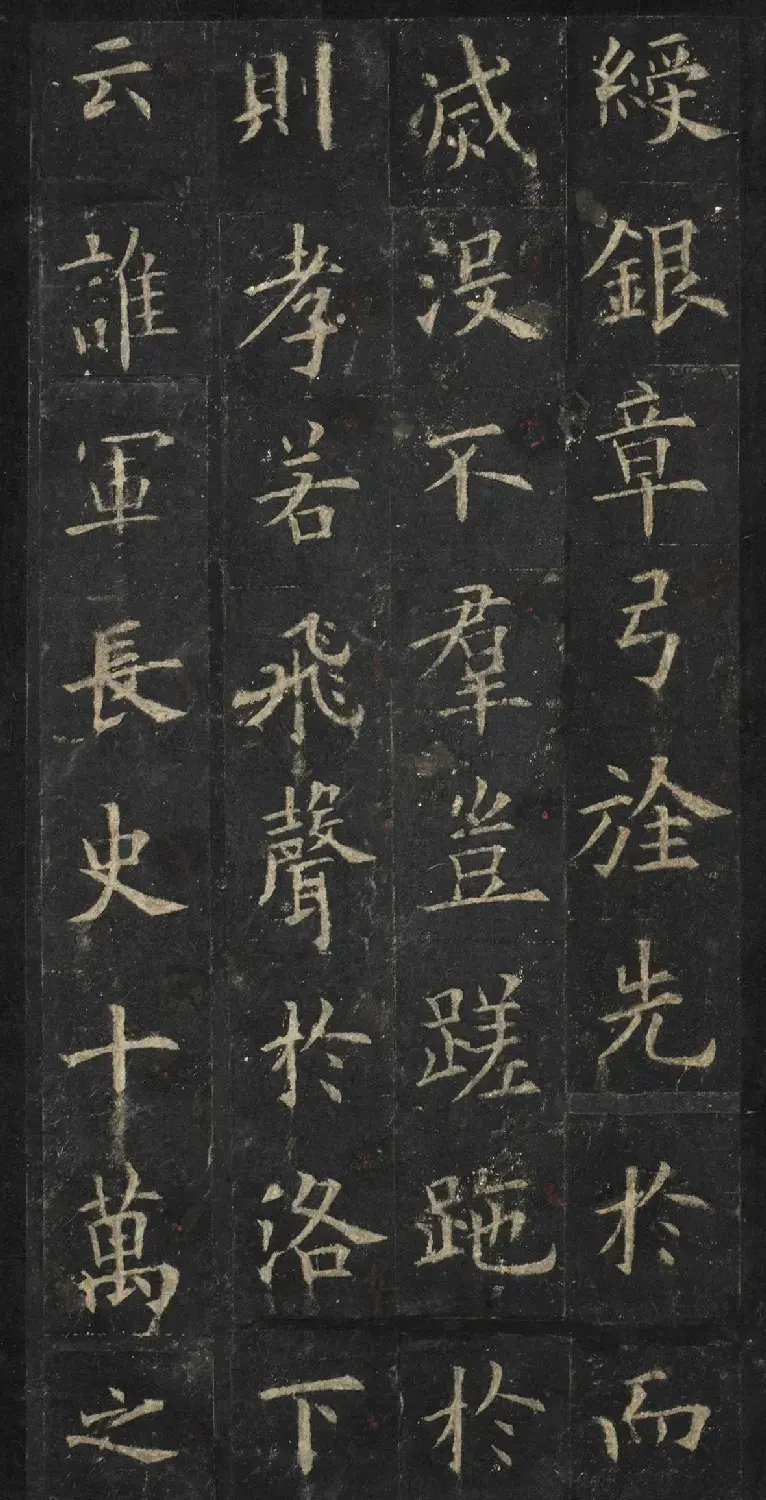 綬銀章弓旌先於而
滅沒不羣豈蹉跎於
則孝若飛聲於洛下
云誰軍長史十萬之